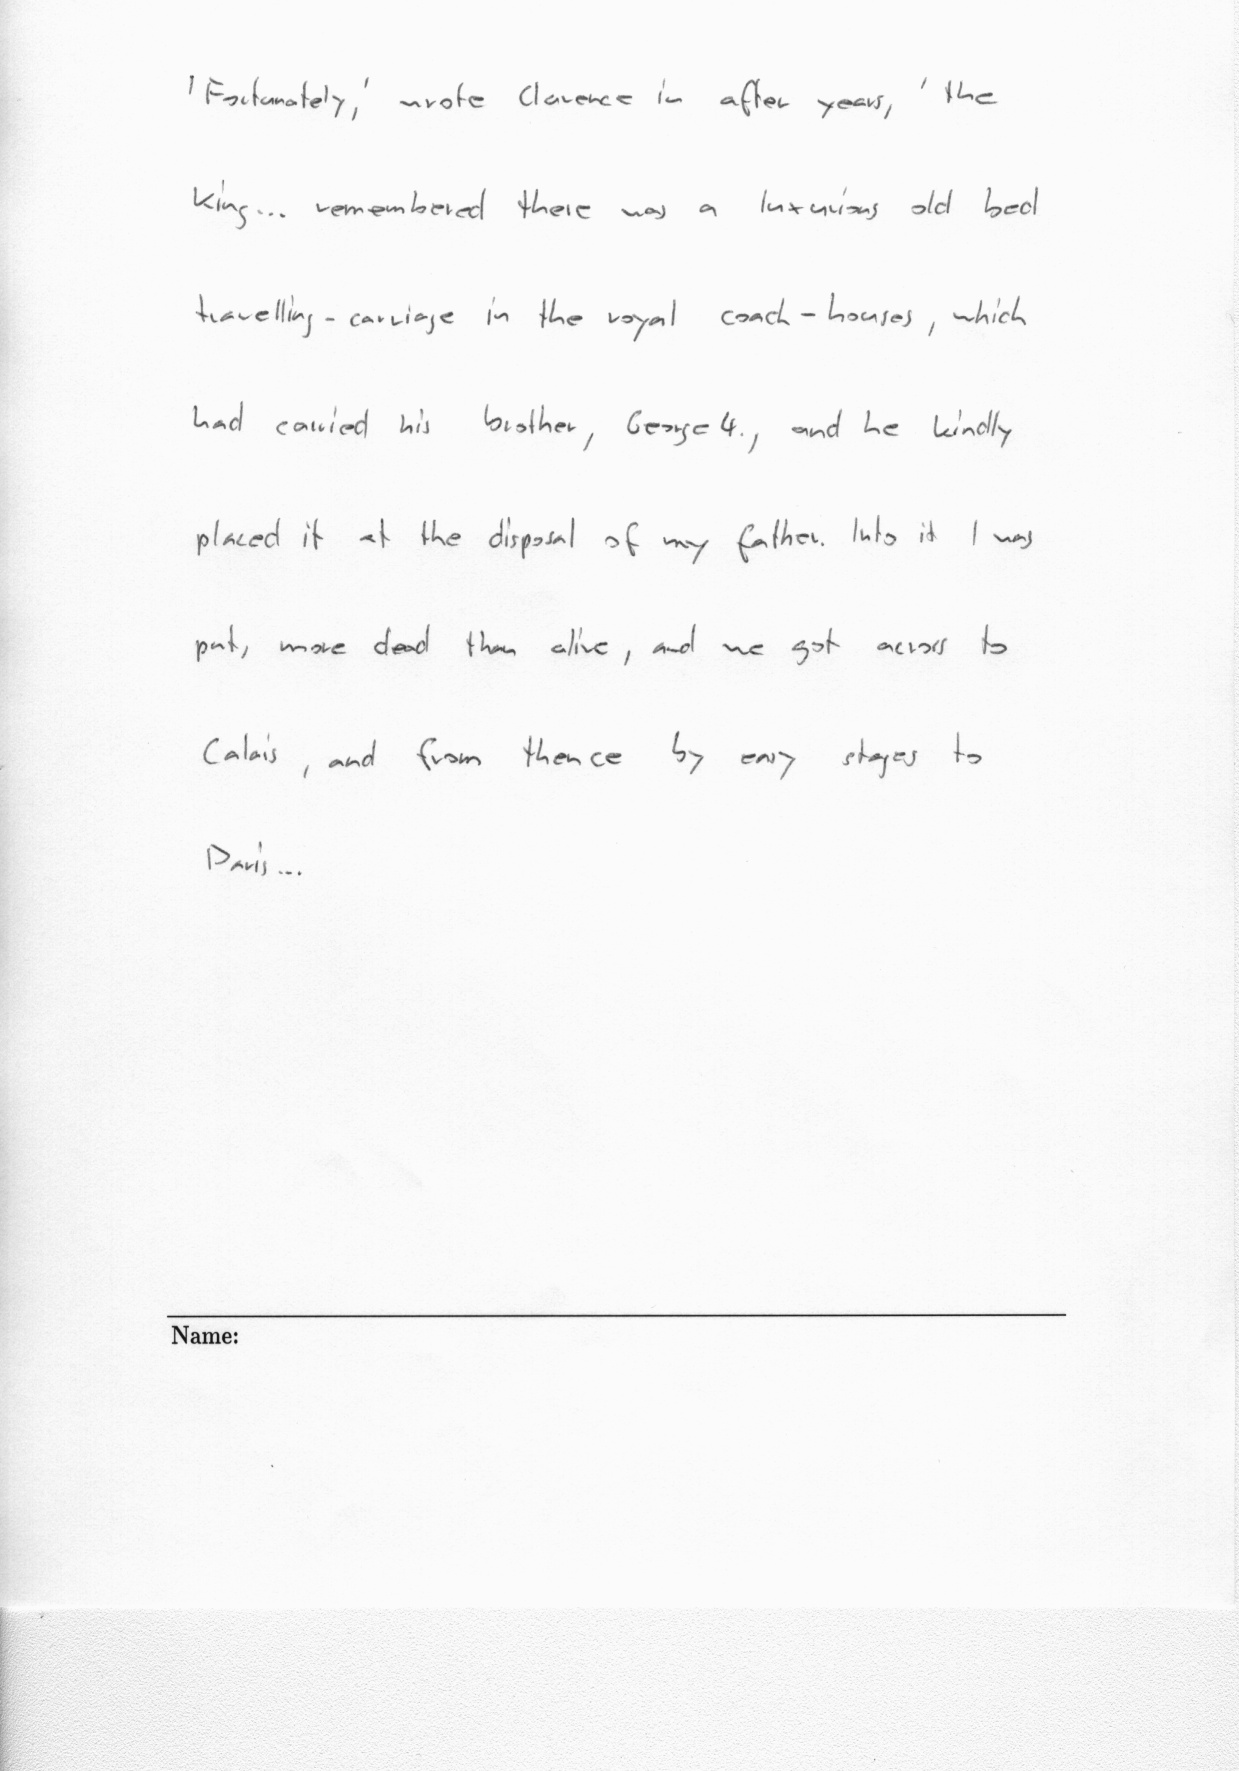 'Fortunately,' wrote Clarence in after years, 'the
King... remembered there was a luxurious old bed
travelling-carriage in the royal coach-houses, which
had carried his brother, George 4., and he kindly
placed it at the disposal of my father. Into it I was
put, more dead than alive, and we got across to
Calais, and from thence by easy stages to
Paris...
Name: